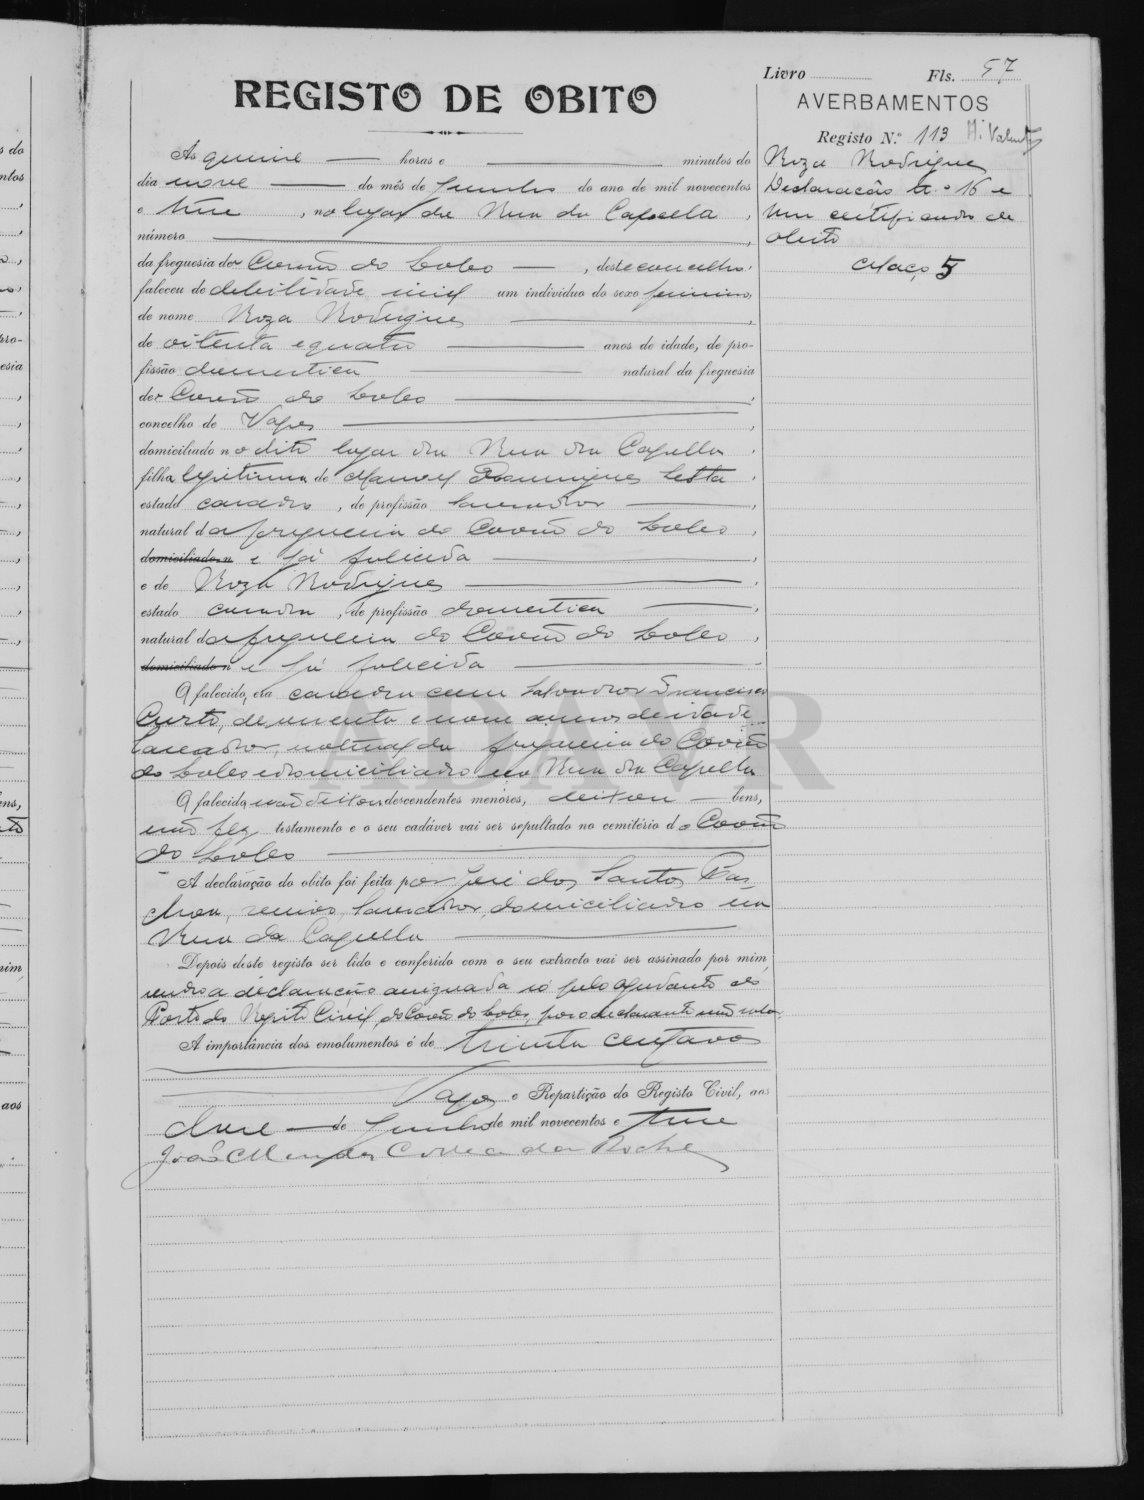 Livro Fls. 57
REGISTO DE OBITO
AVERBAMENTOS
Registo N.º 113
Às quinze — horas e — minutos do
dia nove — do mês de Junho do ano de mil novecentos
e treze, no lugar da Rua da Capella,
número —,
da freguesia de Covão do Lobo —, deste concelho
faleceu de debilidade senil um indivíduo do sexo feminino,
de nome Roza Rodrigues —,
de oitenta e quatro — anos de idade, de pro-
fissão domestica — natural da freguesia
de Covão do Lobo —,
concelho de Vagos —,
domiciliado no dito lugar da Rua da Capella,
filha legitima de Manoel Domingues,
estado casado, de profissão lavrador —,
natural da freguesia do Covão do Lobo,
domiciliado n e já falecido —,
e de Roza Rodrigues —,
estado casada, de profissão domestica —,
natural da freguesia do Covão do Lobo,
domiciliado n e já falecida —
O falecido, era casada com Salvador Francisco
Curto, de e nove annos de idade
lavrador, natural da freguesia do Covão
do Lobo e domiciliado na Rua da Capella
O falecido não deixou descendentes menores, deixou — bens,
não fez testamento e o seu cadáver vai ser sepultado no cemitério do Covão
do Lobo —
A declaração do obito foi feita por José dos Santos
lavrador, domiciliado na
Rua da Capella —
Depois deste registo ser lido e conferido com o seu extracto vai ser assinado por mim,
sendo a declaração assignada só pelo ajudante do
Posto do Registo Civil, do Covão do Lobo, por o declarante não saber.
A importância dos emolumentos é de trinta centavos
Vagos e Repartição do Registo Civil, aos
doze — de Junho de mil novecentos e treze
João Mendes Correia da Rocha
Roza Rodrigues
Declaração n.º 16 e
um certificado de
obito
Maço 5
ADAVR